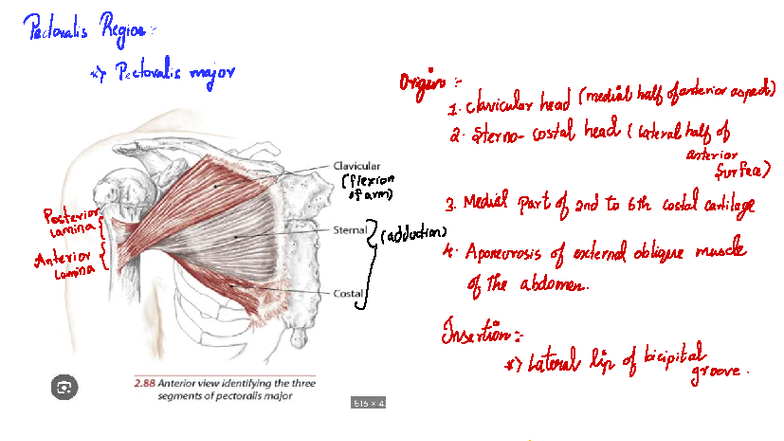 Pectoralis Region:-
*> Pectoralis major
Clavicular
(flexion
of arm)
Sternal
(adduction)
Costal
Posterior
Lamina
Anterior
Lamina
2.88 Anterior view identifying the three
segments of pectoralis major
Origin:-
1. Clavicular head (medial half of anterior aspect)
2. Sterno-costal head (lateral half of
anterior
surface)
3. Medial part of 2nd to 6th costal cartilage
4. Aponeurosis of external oblique muscle
of the abdomen.
Insertion:-
*> Lateral lip of bicipital
groove.